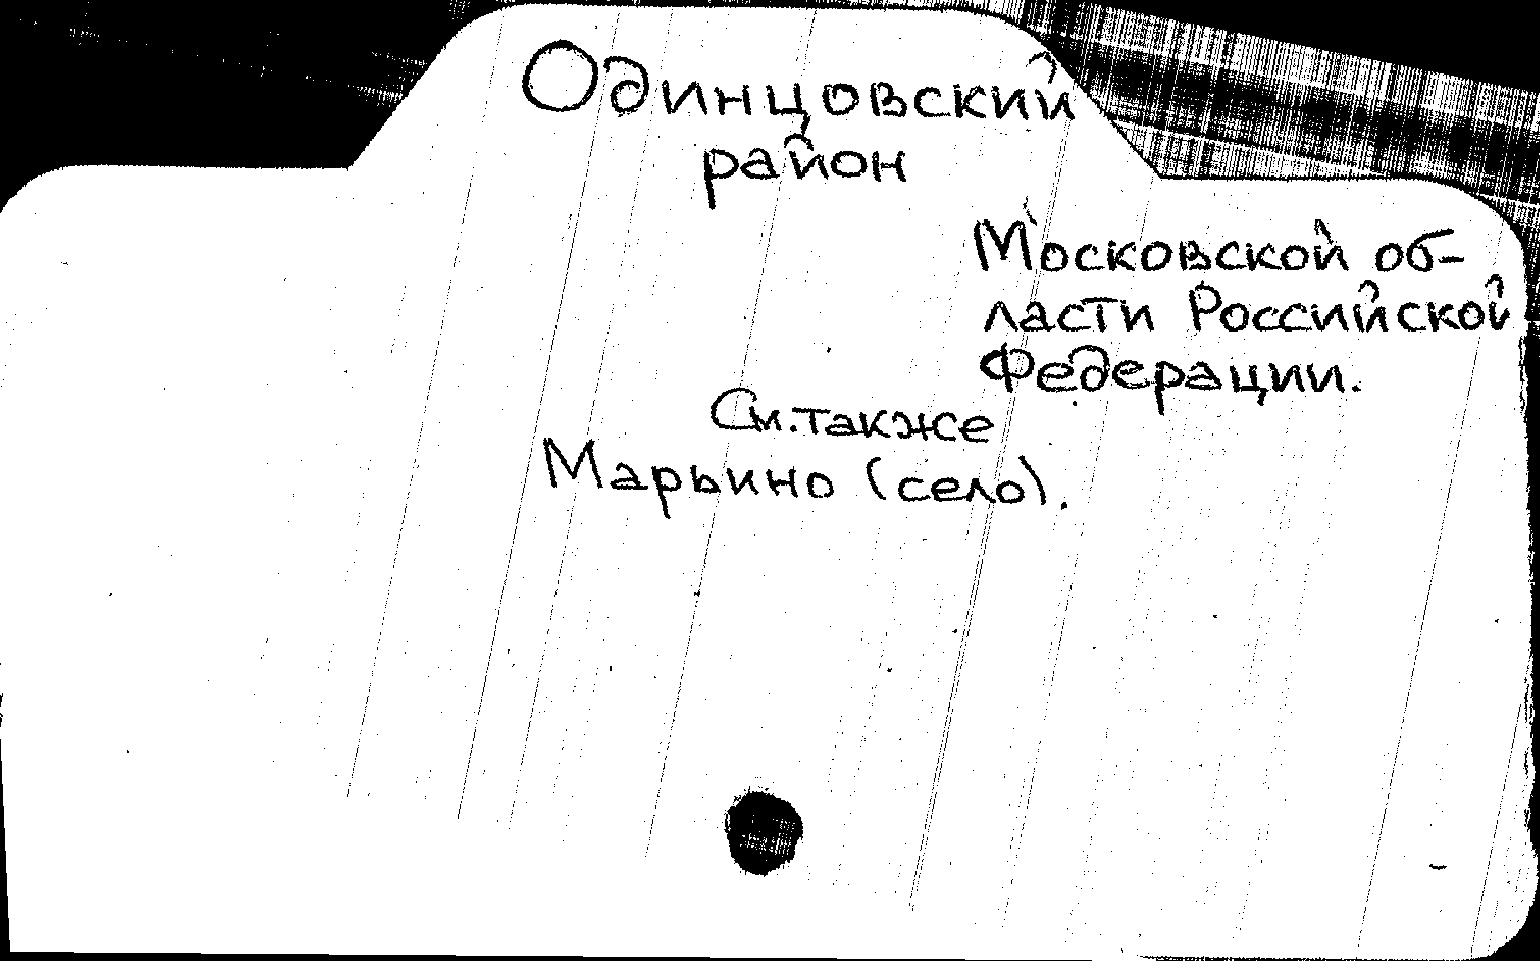 Одинцовский
район
Московской об-
ласти Российской
Федерации.
См. также
Марьино (село).